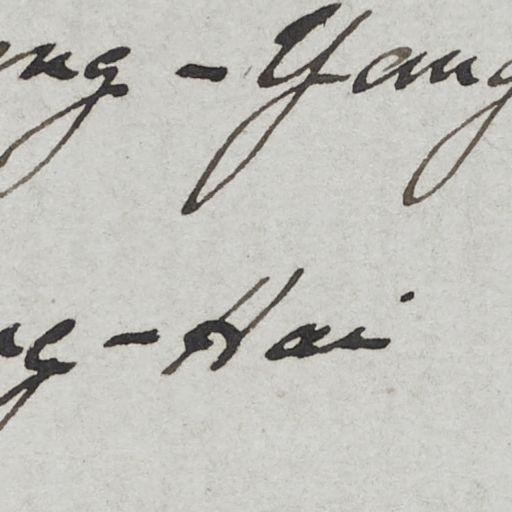 ng - Yang
g - Hai